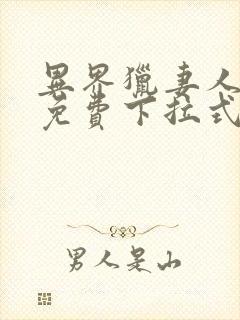 異界獵妻人
免費下拉式
男人是山